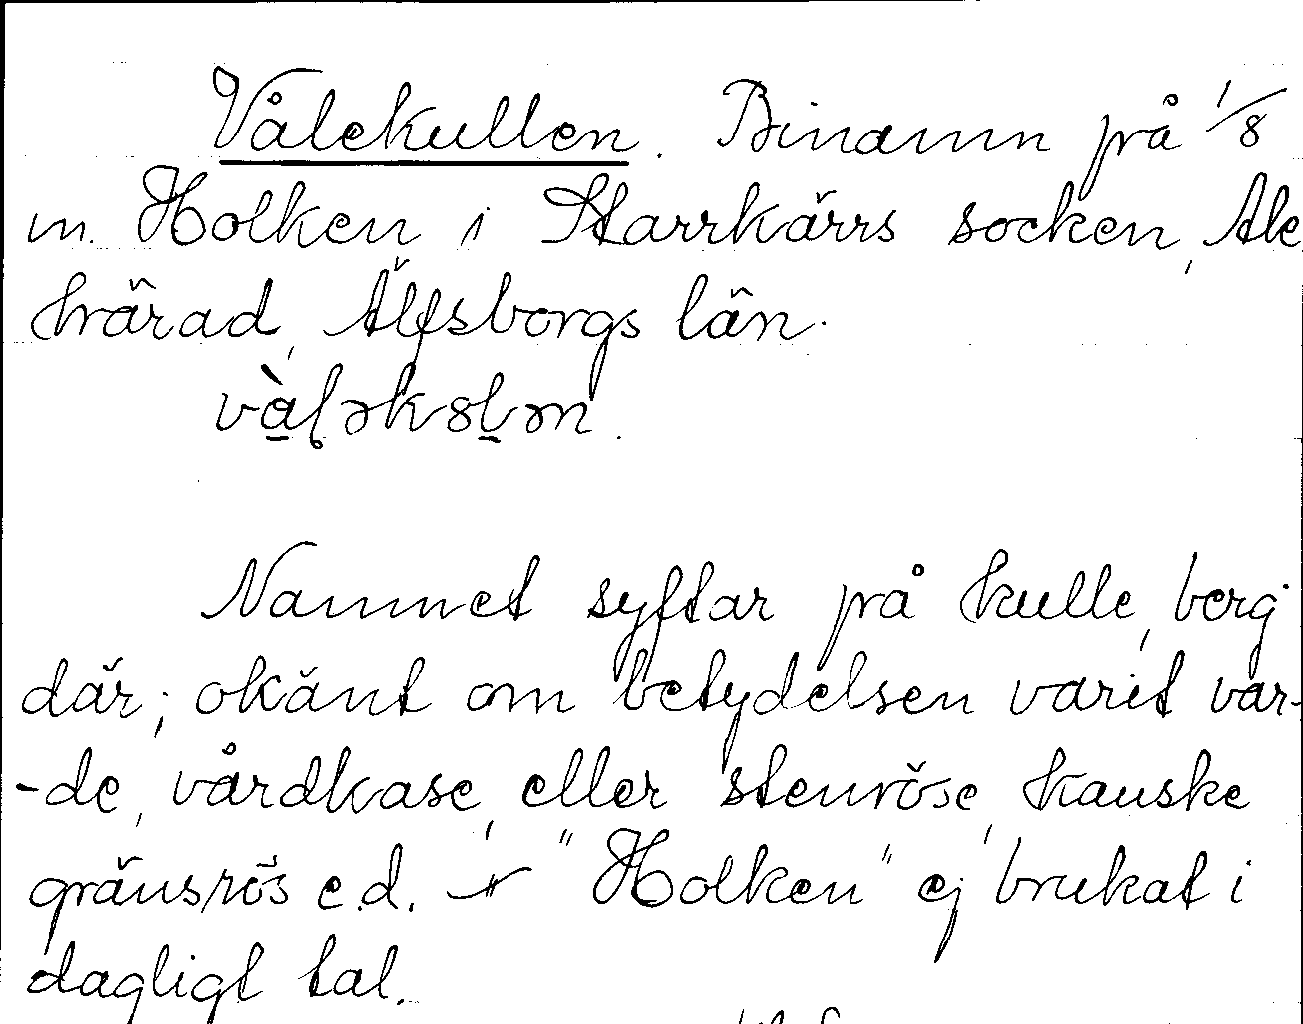 Vålekullen. Binamn på 1/8
m. Holken i Starrkärrs socken, Ale
härad, Älfsborgs län.
vàləkslən.
Namnet syftar på kulle, berg
där; okänt om betydelsen varit var-
-de, vårdkase, eller stenröse, kanske
gränsrös e.d. — "Holken" ej brukat i
dagligt tal.